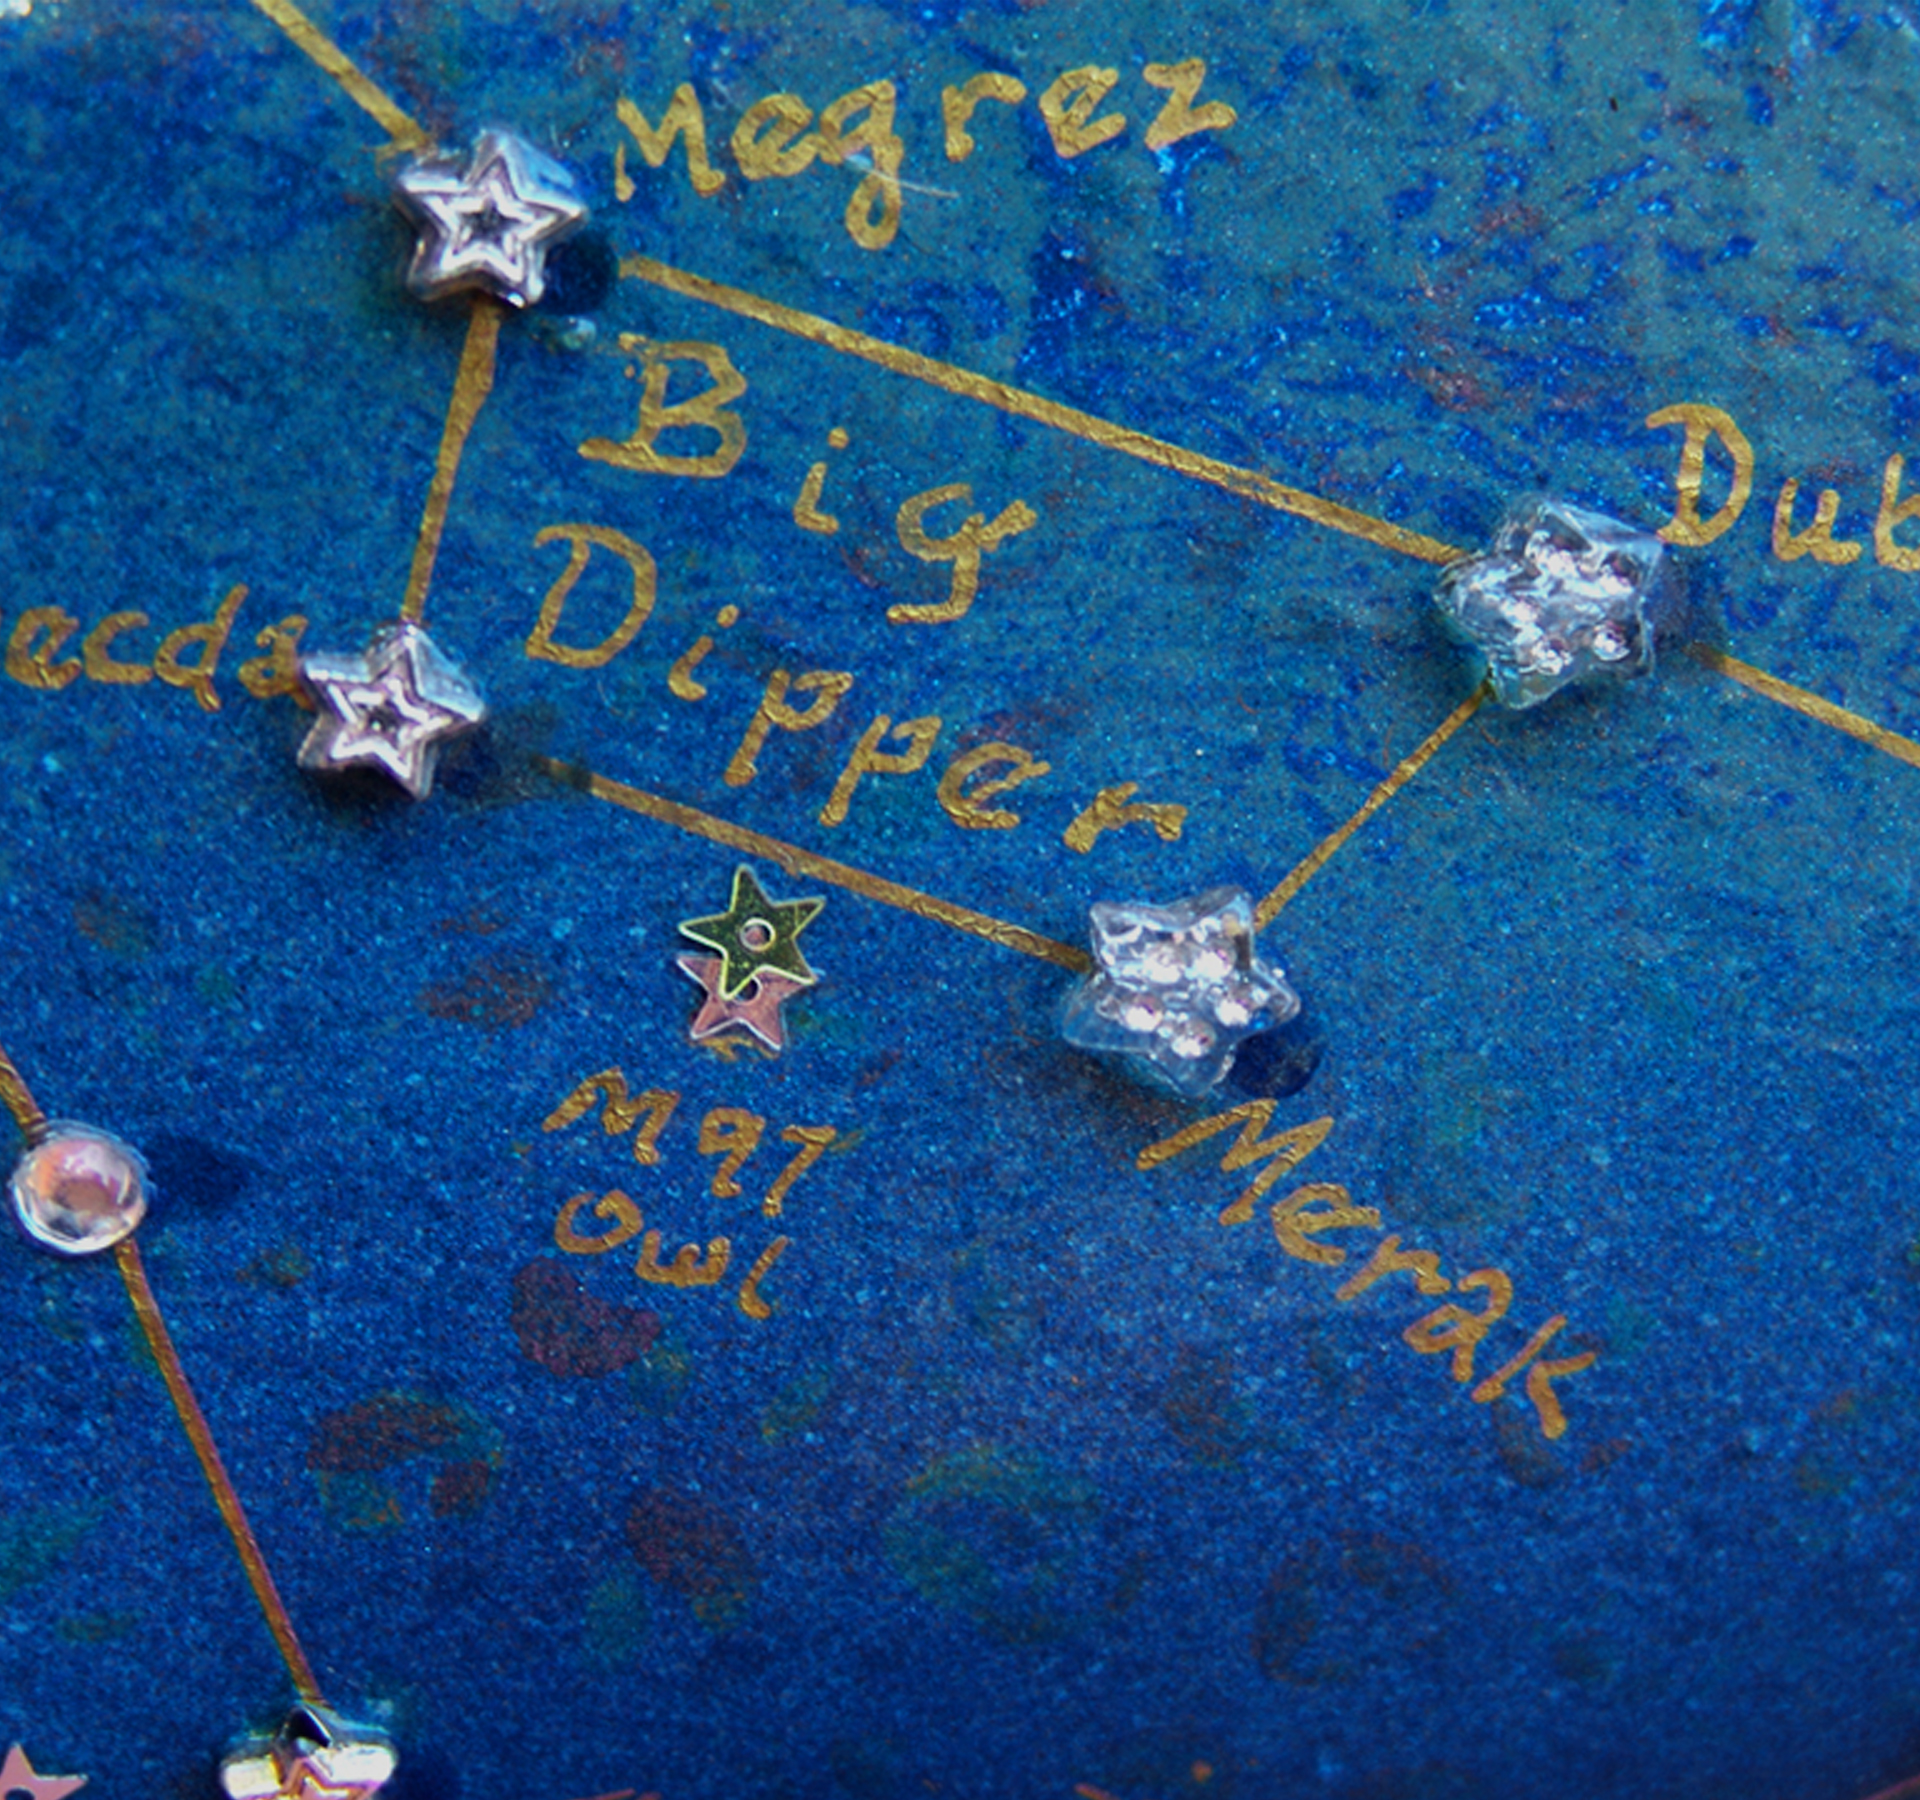 Megrez
Big
Dipper
Dub
ecda
M97
Owl
Merak